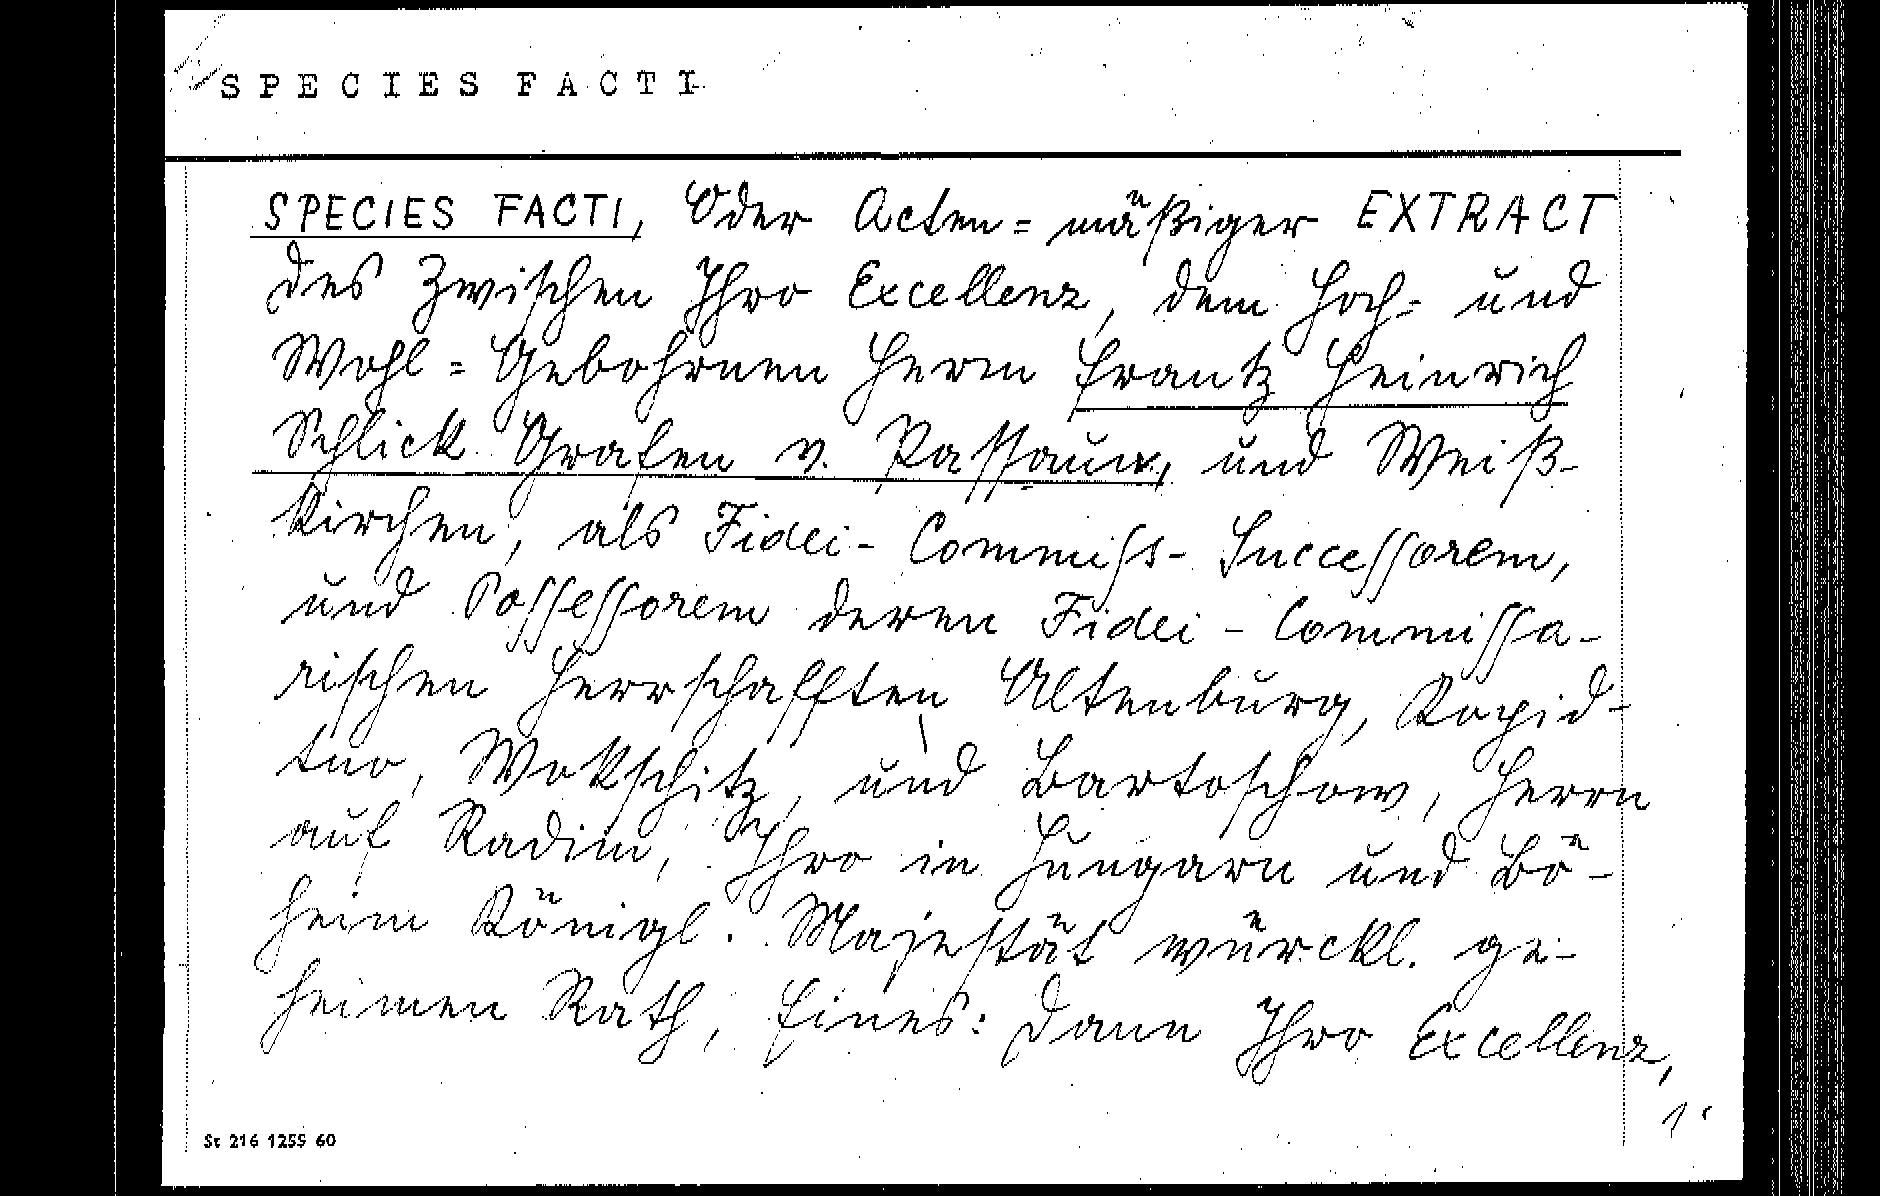 SPECIES FACTI
SPECIES FACTI, Oder Acten=mäßiger EXTRACT
des Zwischen Ihro Excellenz, dem Hoch- und
Wohl=Gebohrnen Herrn Frantz Heinrich
Schlick Grafen v. Passaun, und Weiß-
kirchen, als Fidei-Commiss-Successorem,
und Possessorem deren Fidei-Commissa-
rischen Herrschafften Altenburg, Kopid-
tno, Wokschitz, und Bartoschow, Herrn
auf Radim, Ihro in Hungarn und Bö-
heim Königl. Majestät würckl. ge-
heimen Rath, Eines: dann Ihro Excellenz,
St 216 1255 60